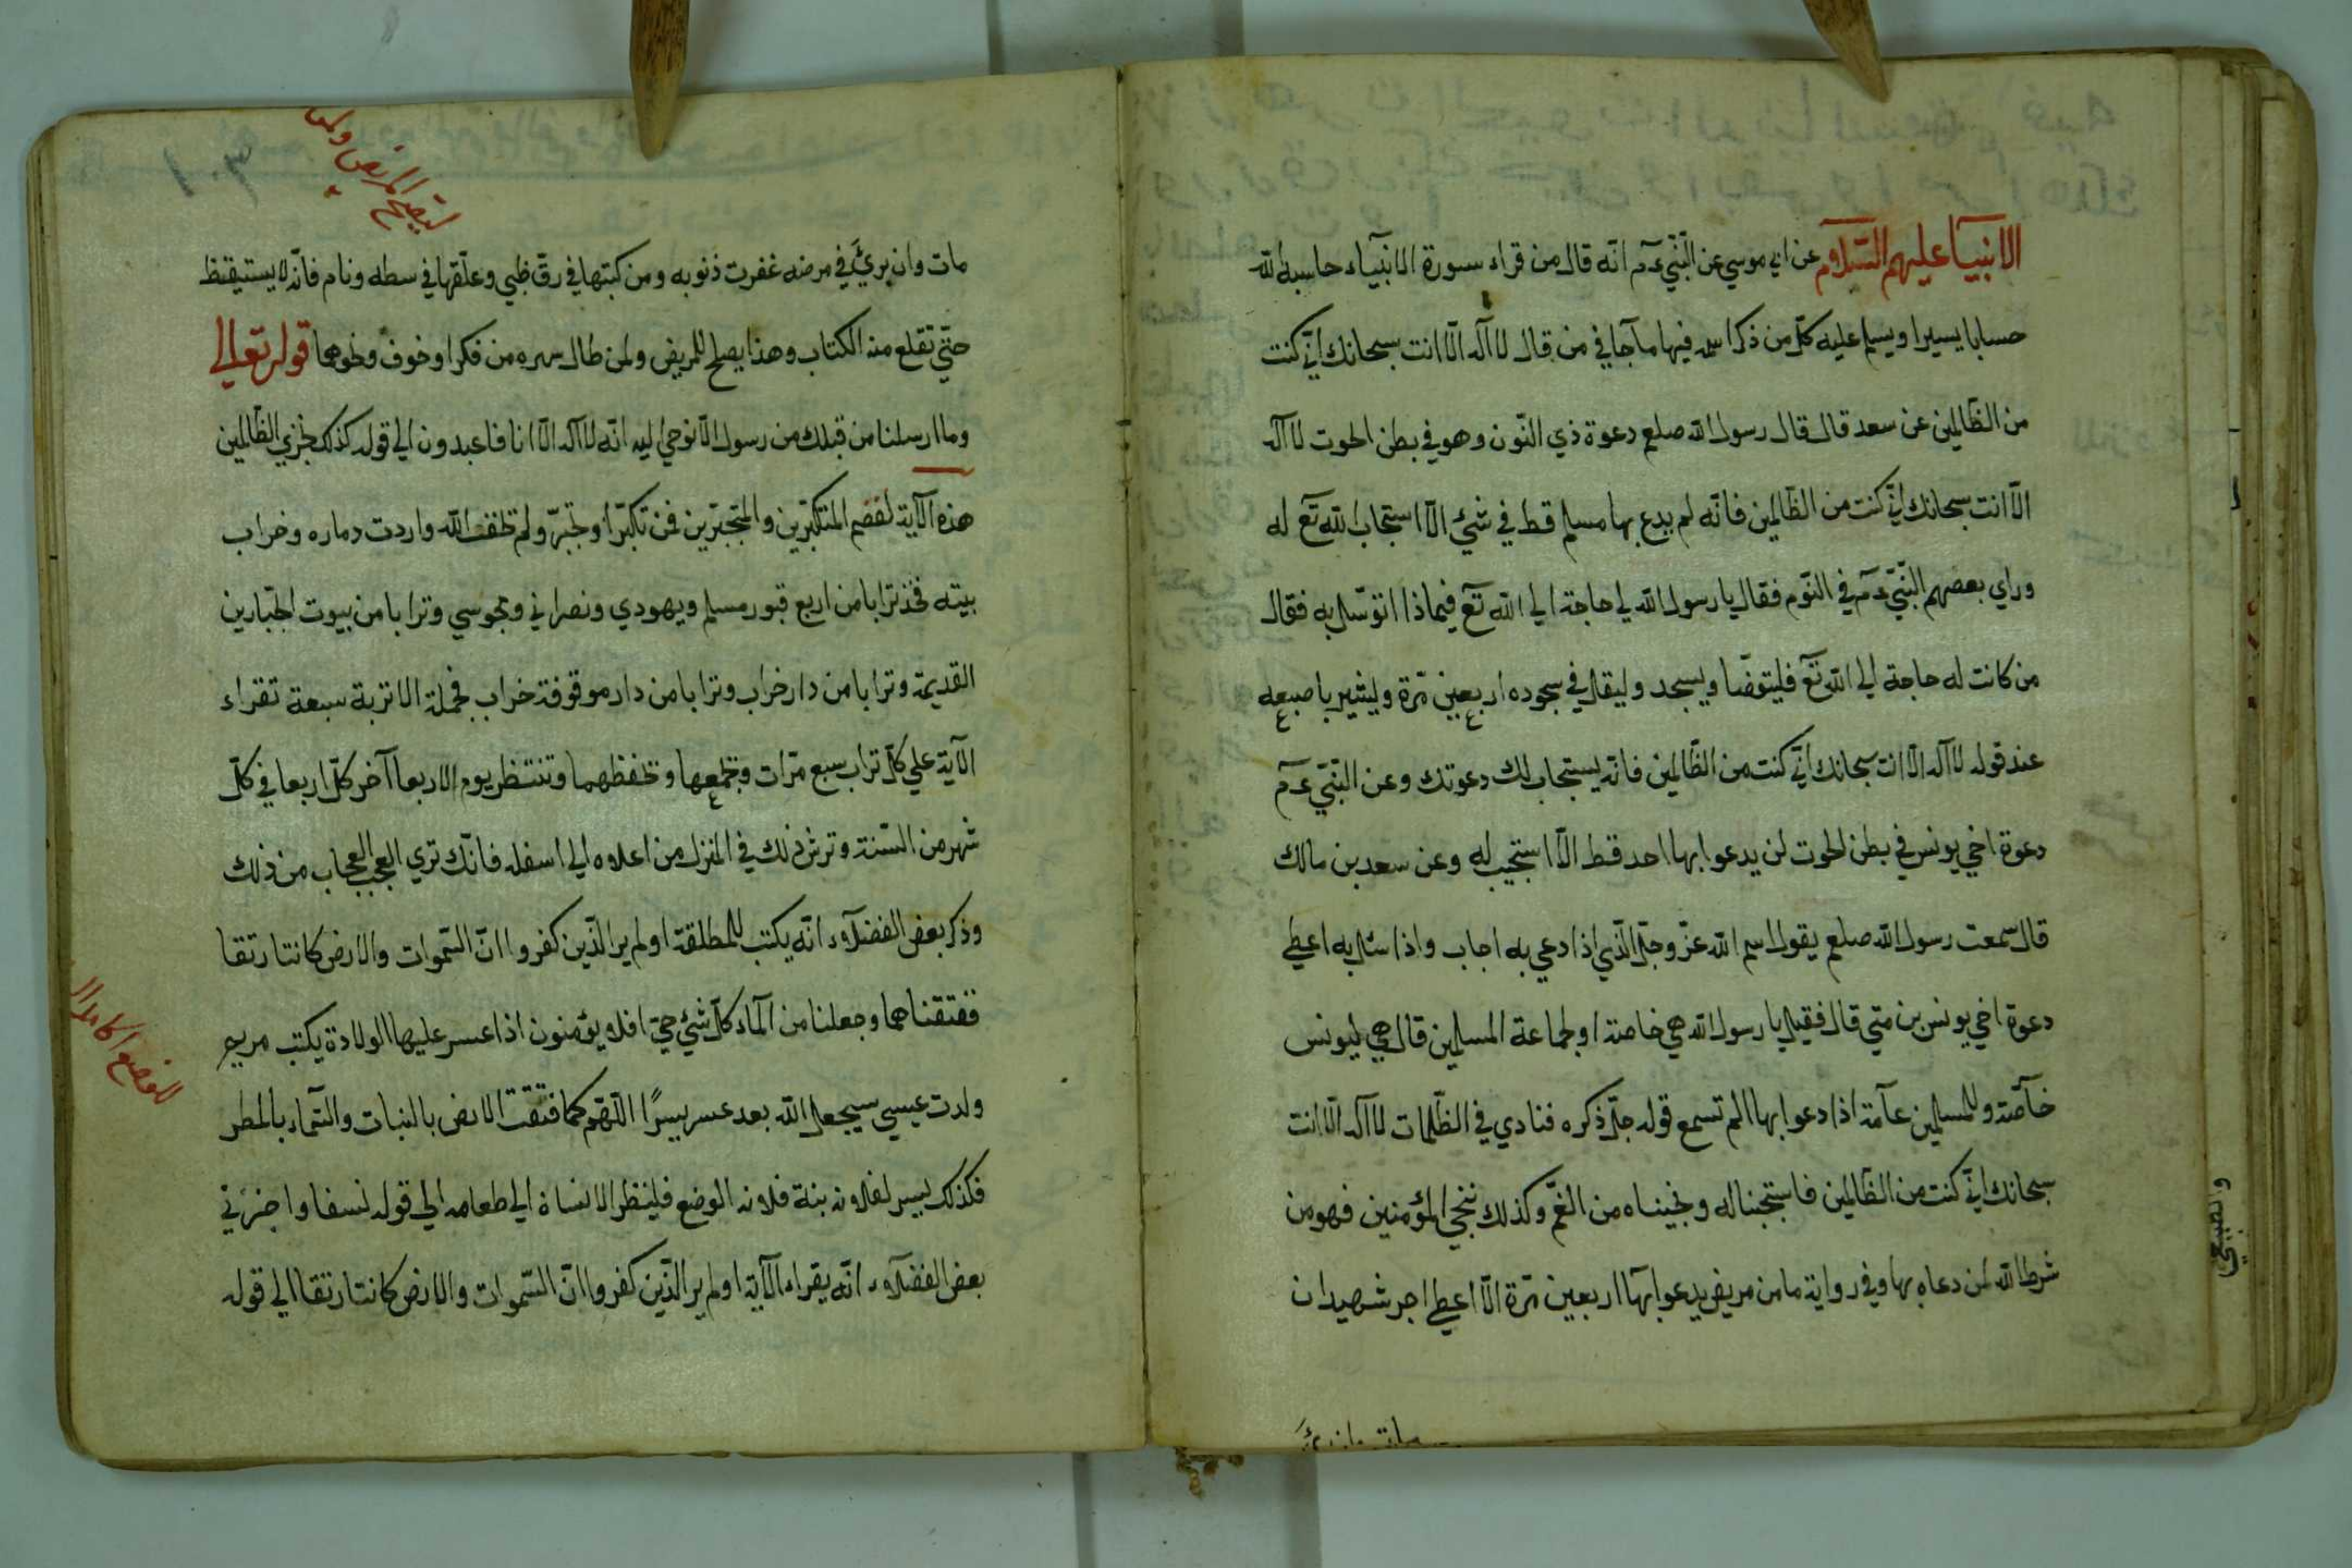 الانبيآء عليهم السّلام عن ابي موسي عن النّبيّ عم انّه قال من قراء سورة الانبيآء حاسبه الله
حسابا يسيرا ويسلم عليه كلّ من ذكر اسمه فيها ماجآ في من قال لا اله الّا انت سبحانك انّي كنت
من الظّالمين عن سعد قال قال رسول الله صلعم دعوة ذي النّون وهو في بطن الحوت لا اله
الّا انت سبحانك انّي كنت من الظّالمين فانّه لم يدع بها مسلم قط في شئ الّا استجاب الله تع له
وراي بعضهم النّبيّ عم في النّوم فقال يا رسول الله لي حاجة الي الله تع فيماذا اتوسّل به فقال
من كانت له حاجة الي الله تع فليتوضّا ويسجد وليقل في سجوده اربعين مرّة وليشير باصبعه
عند قوله لا اله الّا انت سبحانك انّي كنت من الظّالمين فانّه يستجاب لك دعوتك وعن النّبيّ عم
دعوة اخي يونس في بطن الحوت لن يدعوا بها احد قط الّا استجيب له وعن سعد بن مالك
قال سمعت رسول الله صلعم يقول اسم الله عزّ وجلّ الّذي اذا دعي به اجاب واذا سئل به اعطي
دعوة اخي يونس بن متي قال فقيل يا رسول الله هي خاصة او لجماعة المسلمين قال هي ليونس
خآصّة وللمسلمين عآمة اذا دعوا بها الم تسمع قوله جلّ ذكره فنادي في الظّلمات لا اله الّا انت
سبحانك انّي كنت من الظّالمين فاستجبنا له ونجيناه من الغمّ وكذلك ننجي المؤمنين فهو من
شرط الله لمن دعاه بها وفي رواية ما من مريض يدعوا بها اربعين مرّة الّا اعطي اجر شهيد ان
مات وان برئ
ليصلح للمريض ولمن
مات وان برئ في مرضه غفرت ذنوبه ومن كتبها في رقّ ظبي وعلّقها في سطه ونام فانّه لا يستيقظ
حتّي تقلع منه الكتاب وهذا يصلح للمريض ولمن طال سهره من فكر او خوف ونحوهما قوله تعالي
وما ارسلنا من قبلك من رسول الّا نوحي اليه انّه لا اله الّا انا فاعبدون الي قوله كذلك نجزي الظّالمين
هذه الآية لقصم المتكبّرين والمتجبّرين فمن تكبّر او تجبّر ولم تخف الله واردت دماره وخراب
بيته فخذ ترابا من اربع قبور مسلم ويهودي ونصراني ومجوسي وترابا من بيوت الجبّارين
القديمة وترابا من دار خراب وترابا من دار موقوفة خراب فجملة الاتربة سبعة تقراء
الآية علي كلّ تراب سبع مرّات وتجمعها وتحفظهما وتنتظر يوم الاربعا آخر كلّ اربعا في كلّ
شهر من السّنة وترش ذلك في المنزل من اعلاه الي اسفله فانّك تري العجب العجاب من ذلك
وذكر بعض الفضلآء انّه يكتب للمطلقة اولم ير الّذين كفروا انّ السّموات والارض كانتا رتقا
ففتقناهما وجعلنا من المآء كلّ شئ حيّ افلا يؤمنون اذا عسر عليها الولادة يكتب مريم
للوضع
ولدت عيسي سيجعل الله بعد عسر يسرًا اللّهم كما فتقت الارض بالنبات والسّمآء بالمطر
فكذلك يسير لفلانه بنة فلانه الوضع فلينظر الانسان الي طعامه الي قوله نسفا واخبرني
بعض الفضلآء انّه يقراء الآية اولم ير الّذين كفروا انّ السّموات والارض كانتا رتقا الي قوله